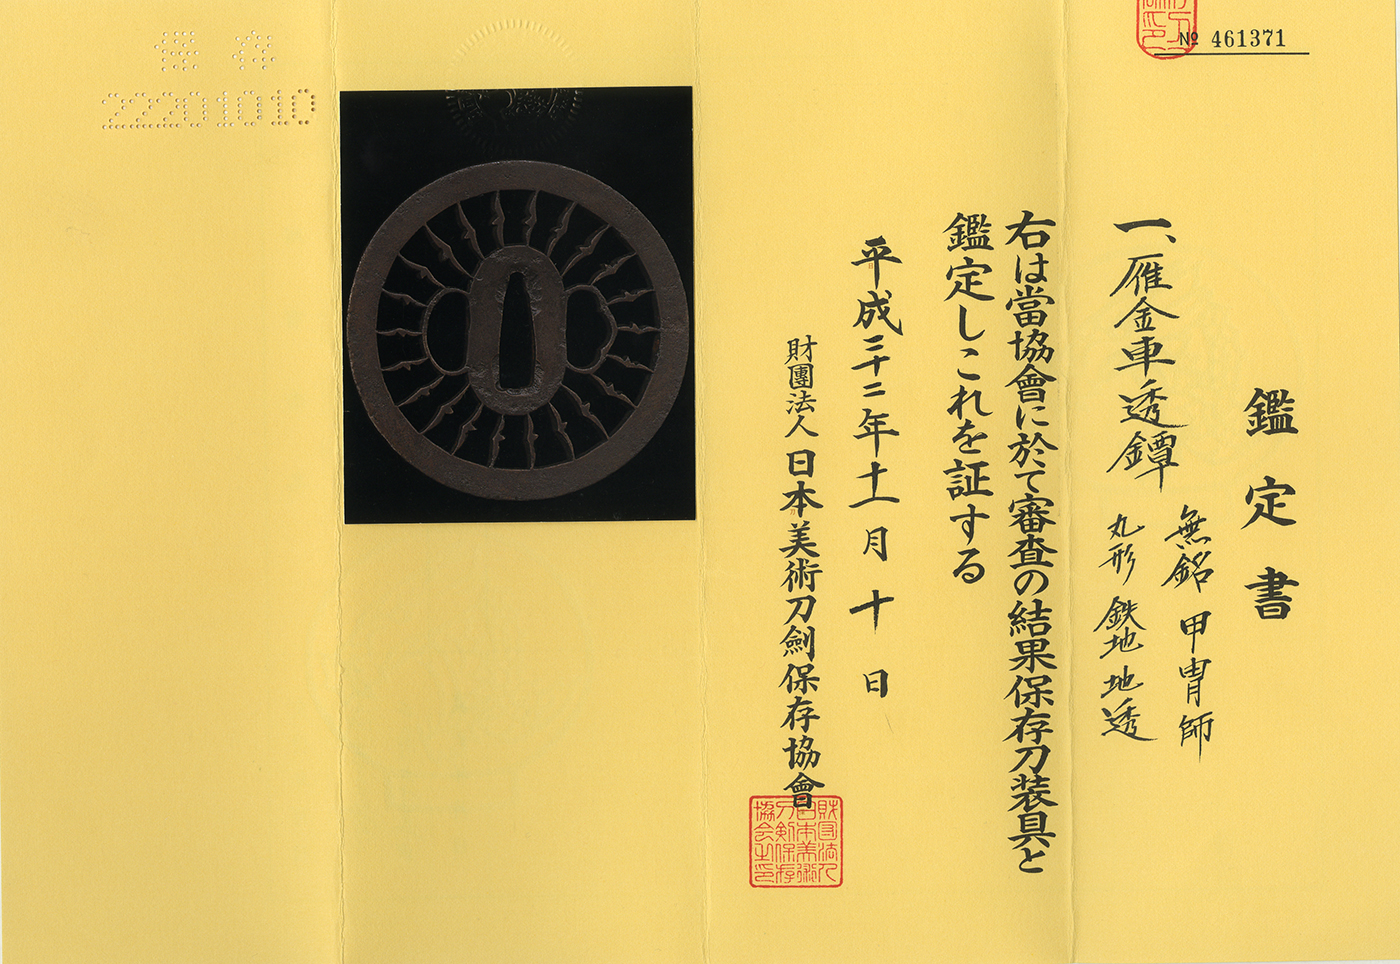 № 461371
鑑定書
一、雁金車透鐔
無銘 甲冑師
丸形 鉄地 地透
右は當協會に於て審査の結果保存刀装具と
鑑定しこれを証する
平成二十二年十一月十日
財團法人日本美術刀劍保存協會
財団法人
日本美術
刀剣保存
協会之印
保存
22201010